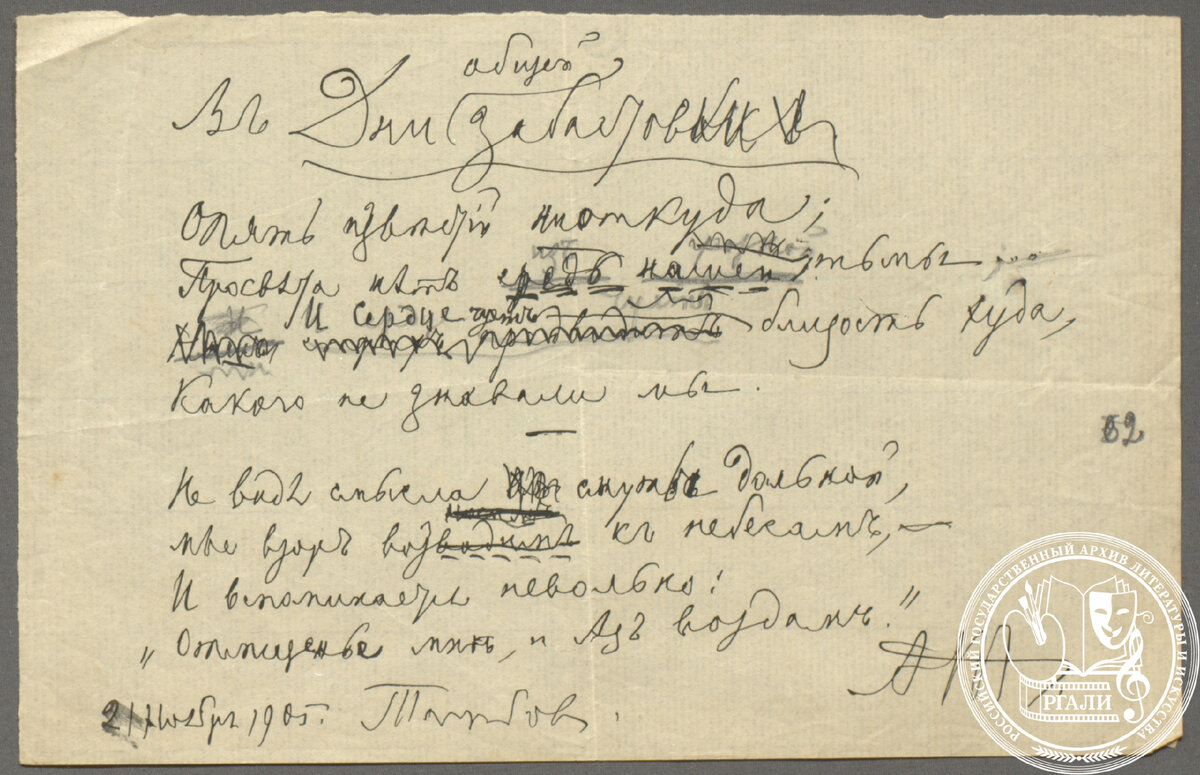 общей
Въ Дни Забастовки
Опять извѣстій ниоткуда;
Просвѣта нѣтъ средь нашей тьмы...
И сердце чуетъ близость худа,
Какого не знавали мы.
Не видя смысла смуты дольной,
мы взоръ возводимъ къ небесамъ, —
И вспоминается невольно:
„Отмщенье мнѣ, и Азъ воздамъ."
Ноября 1905. Тамбов.
62
РОССИЙСКИЙ ГОСУДАРСТВЕННЫЙ АРХИВ ЛИТЕРАТУРЫ И ИСКУССТВА
РГАЛИ